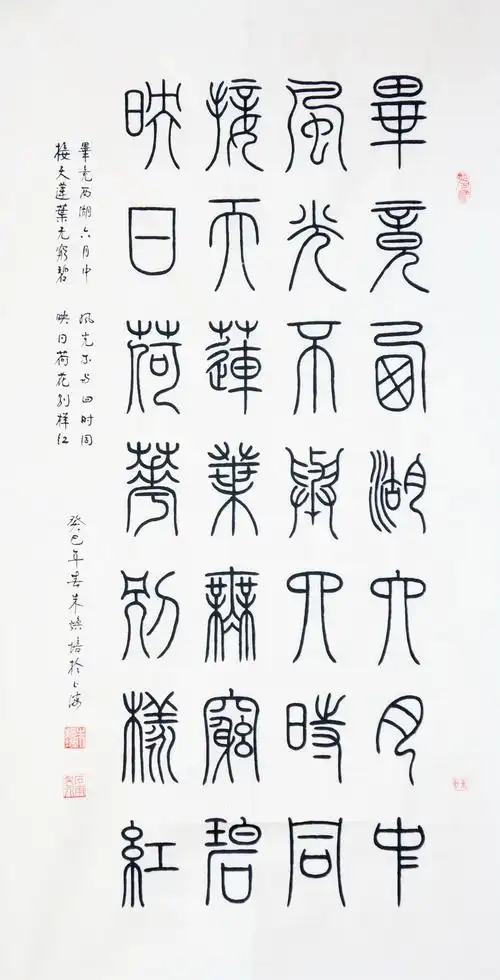 畢竟西湖六月中
風光不與四時同
接天蓮葉無窮碧
映日荷華別樣紅
畢竟西湖六月中 风光不与四时同
接天蓮葉无窮碧 映日荷花别样红
癸巳年春朱焕培於上海